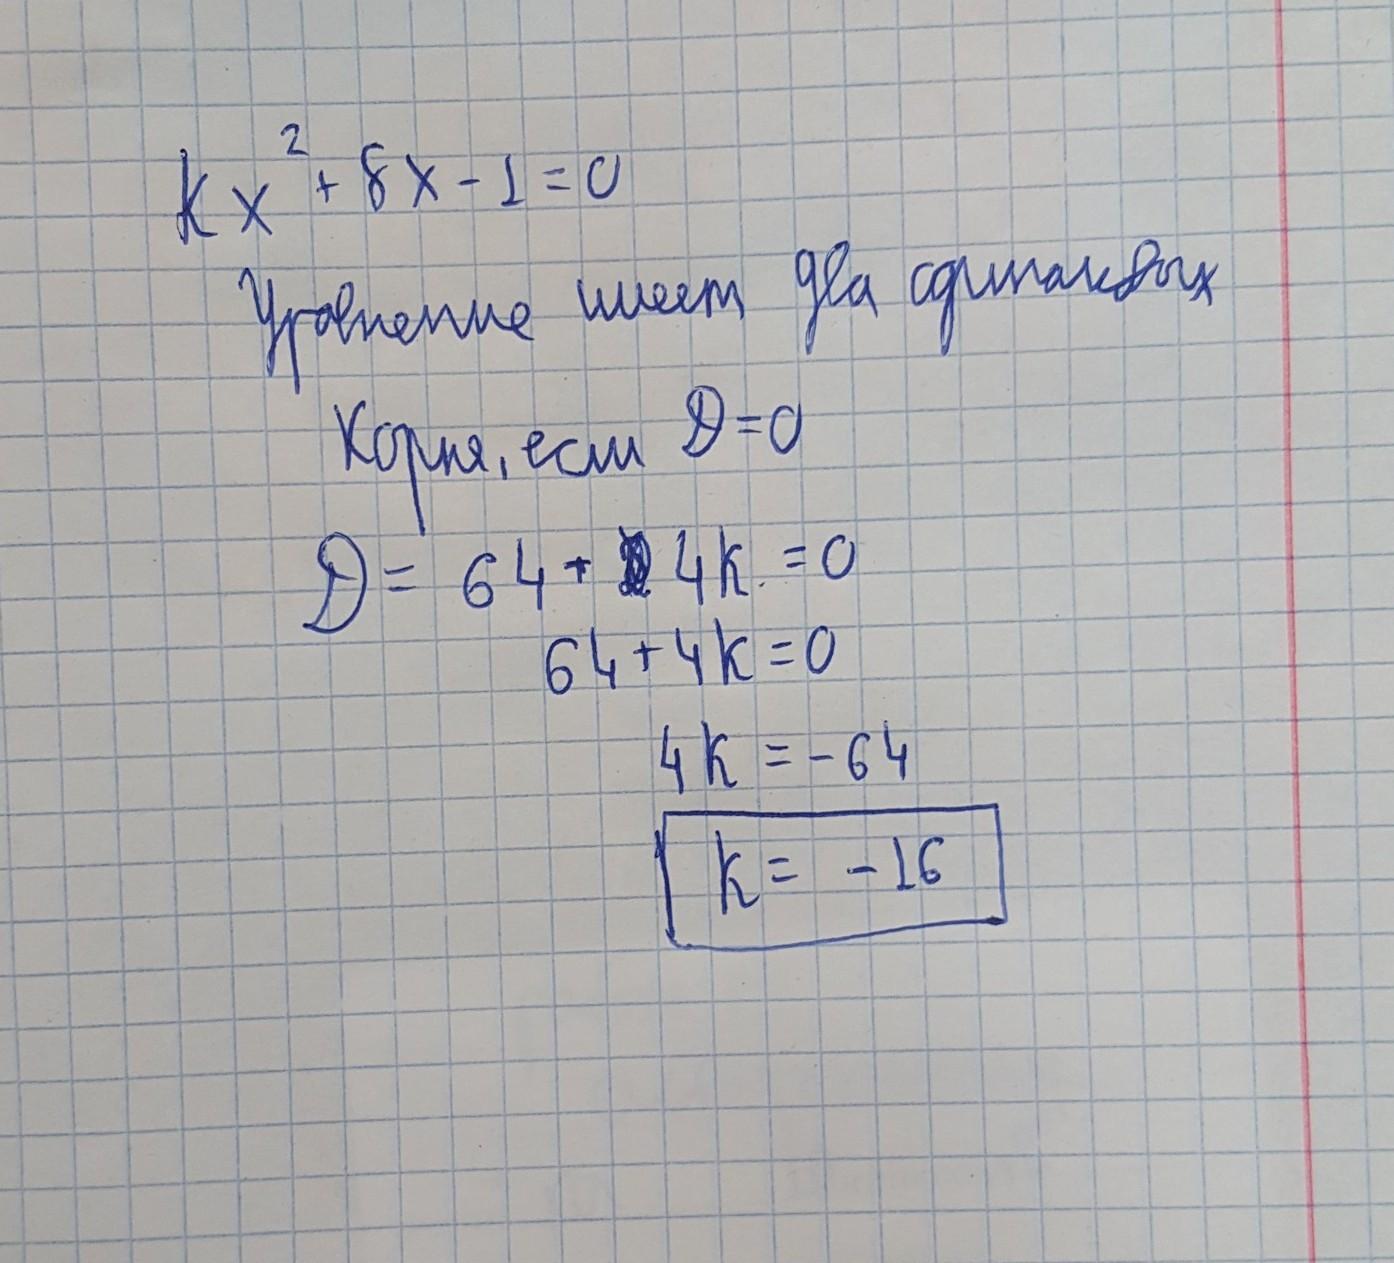 kx² + 8x - 1 = 0
Уравнение имеет два одинаковых
корня, если D = 0
D = 64 + 4k = 0
64 + 4k = 0
4k = -64
k = -16